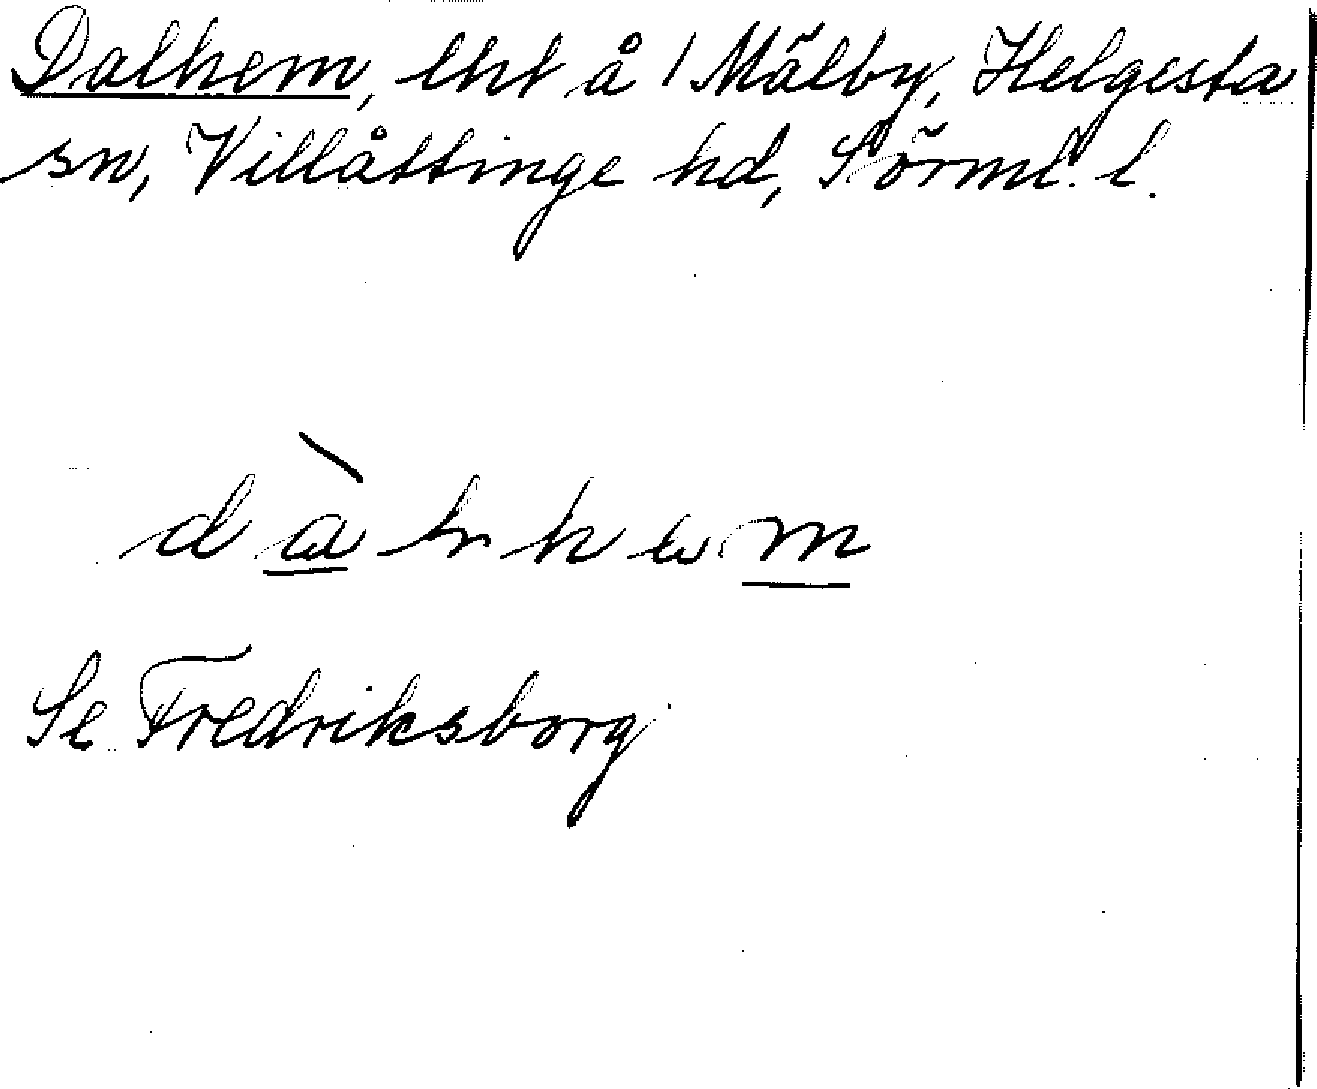 Dalhem, lht å 1 Mälby, Helgesta
sn, Villåttinge hd, Sörml. l.
Se Fredriksborg